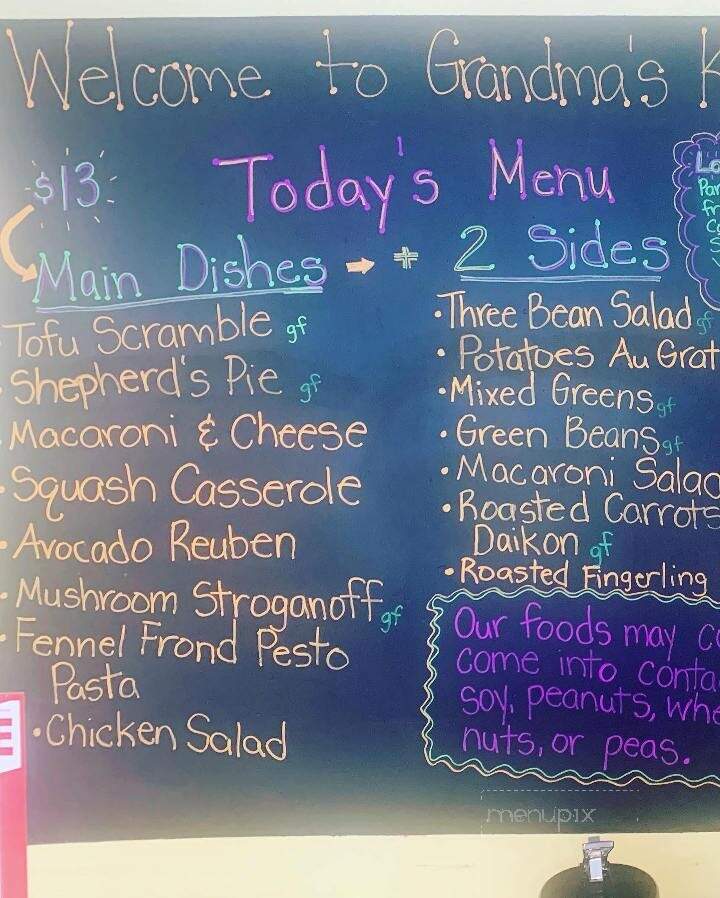 Welcome to Grandma's K
$13
Today's Menu
Main Dishes → + 2 Sides
Tofu Scramble gf
Shepherd's Pie gf
Macaroni & Cheese
• Squash Casserole
• Avocado Reuben
• Mushroom Stroganoff gf
• Fennel Frond Pesto
Pasta
• Chicken Salad
• Three Bean Salad gf
• Potatoes Au Grat
• Mixed Greens gf
• Green Beans gf
• Macaroni Salad
• Roasted Carrots
Daikon gf
• Roasted Fingerling
Lo
Par
fr
Our foods may c
come into conta
soy, peanuts, whe
nuts, or peas.
E
menupix